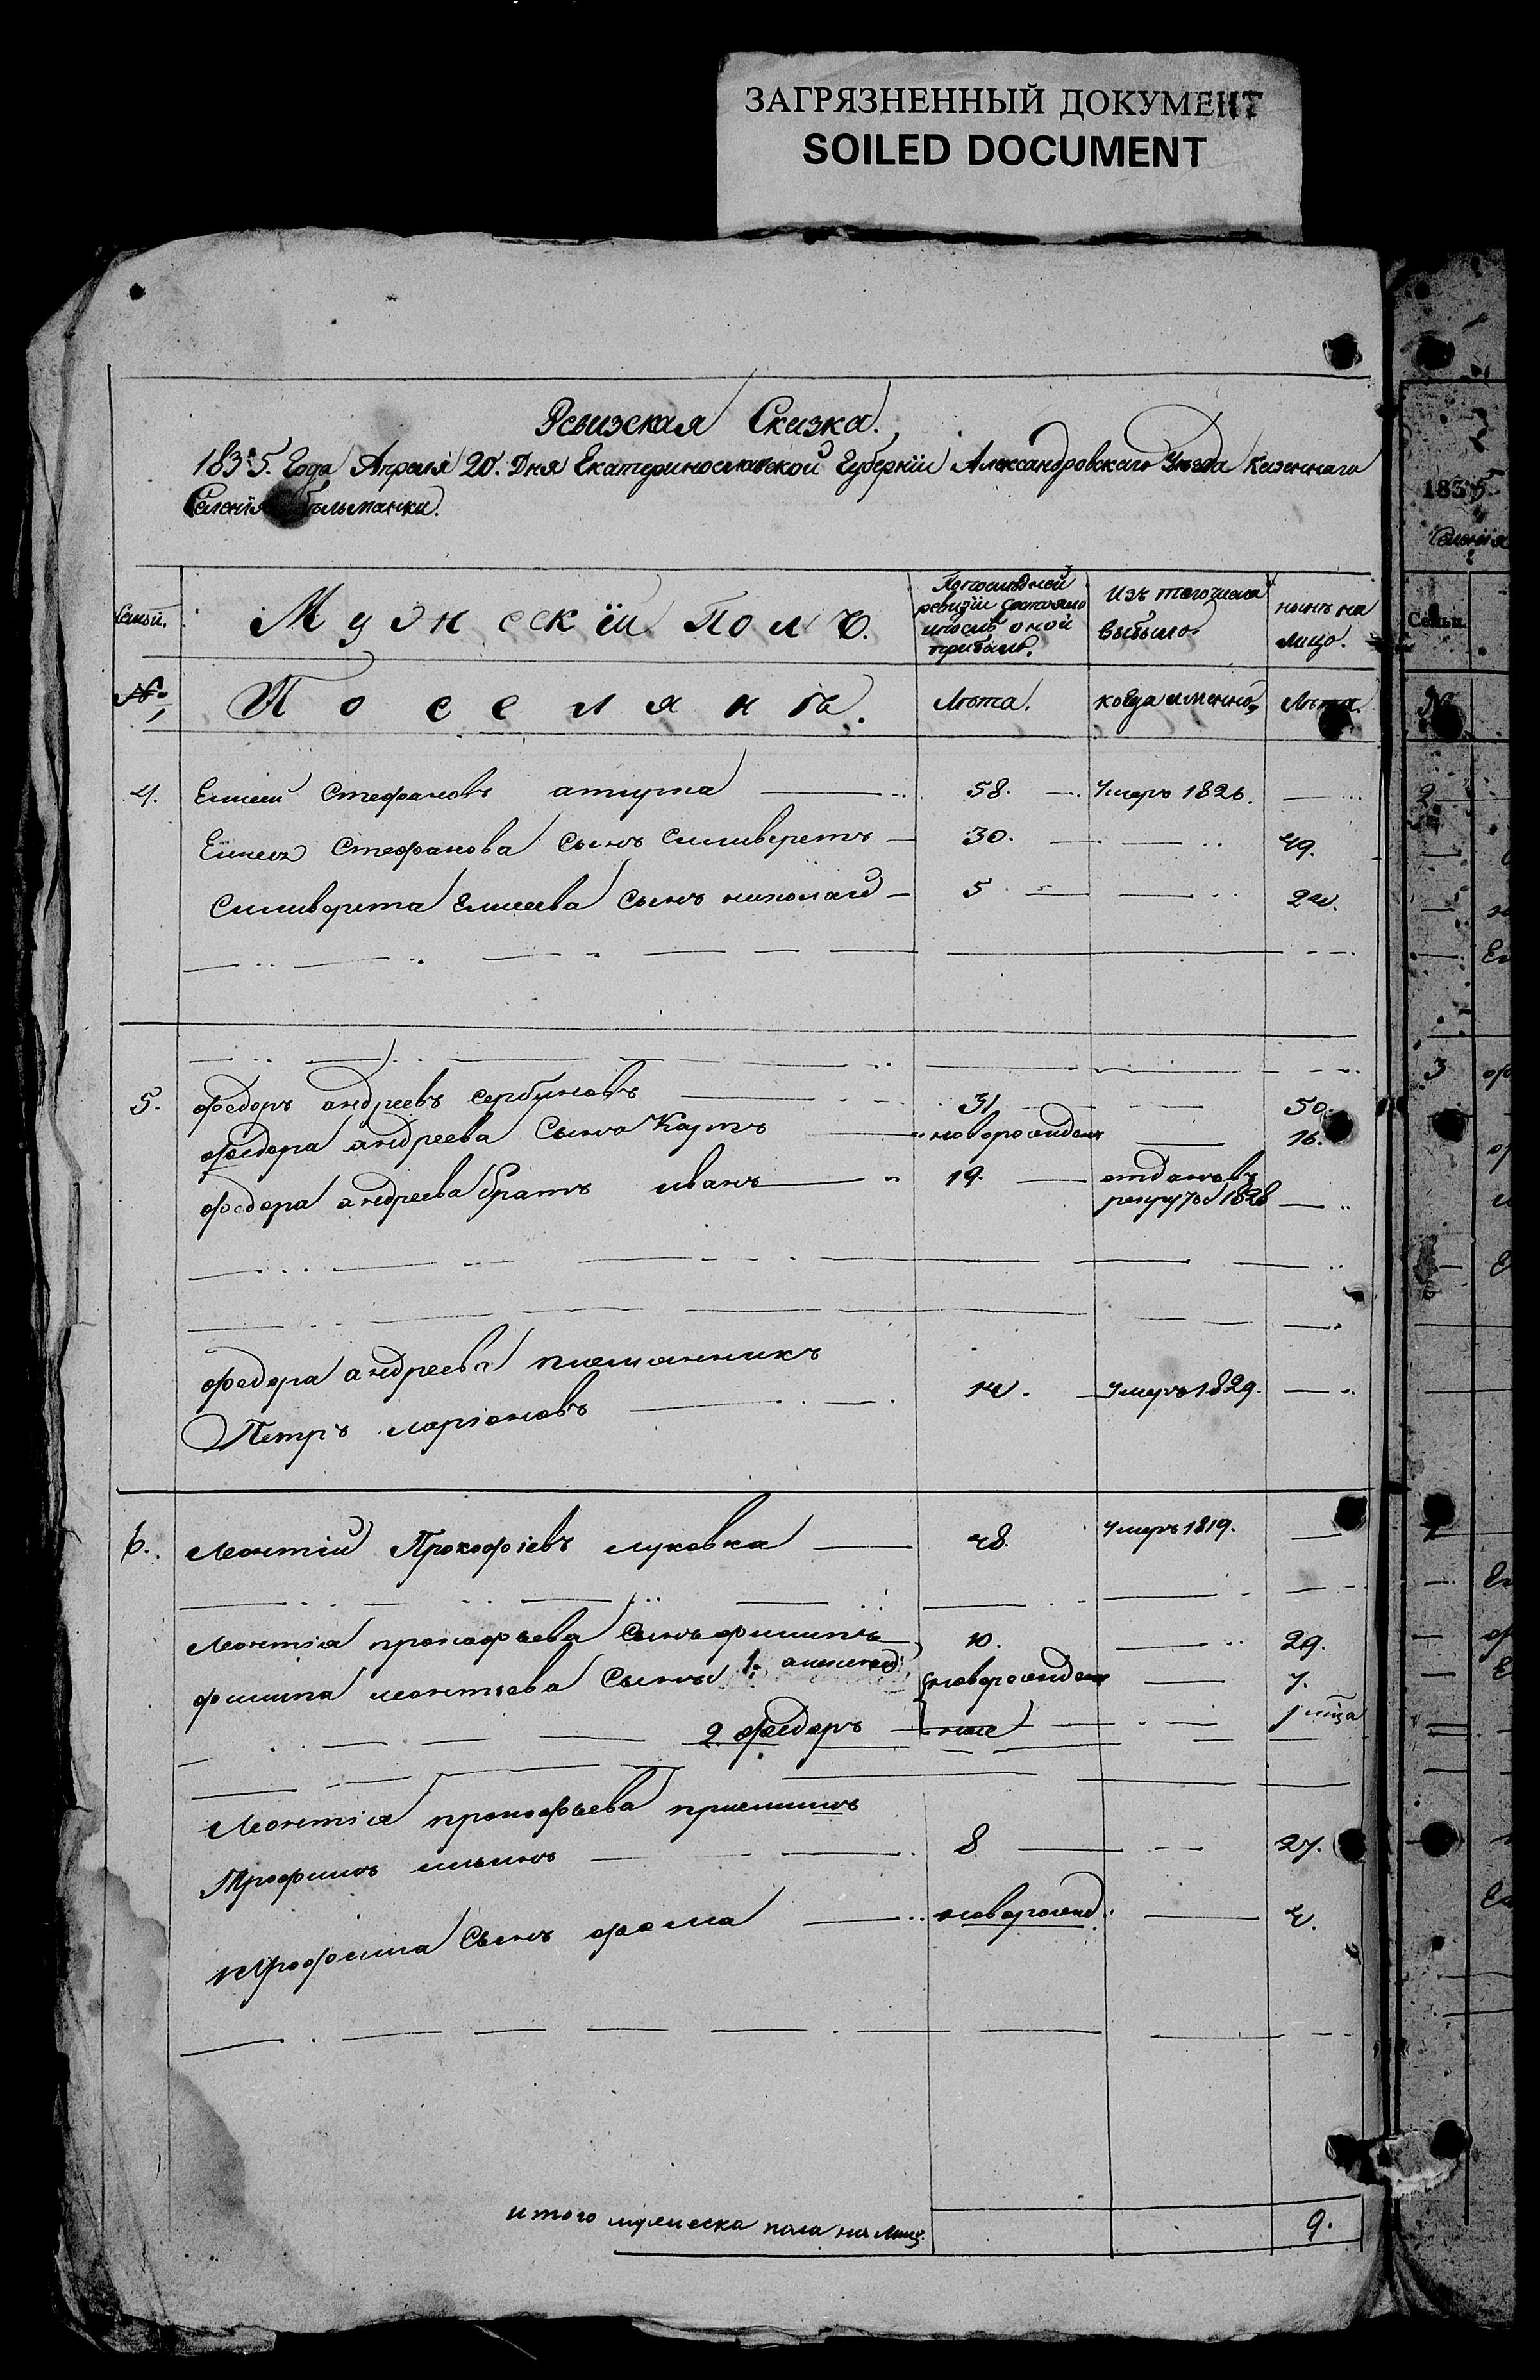 ЗАГРЯЗНЕННЫЙ ДОКУМЕНТ
SOILED DOCUMENT
Ревизская Сказка.
1835. Года Апреля 20. Дня Екатеринославской Губерніи Александровскаго Уезда Казеннаго
Селенія
Семьи. Мужескій Полъ. По последней ревизіи состояло и после оной прибыло. Изъ того числа выбыло. ныне на лицо.
№ 1 Поселяне. Лета. когда именно. Лета.
4. Елисей Стефановъ 58. Умеръ 1826.
Елисея Стефанова Сынъ Силиверстъ 30. 49.
Силиверста Елисеева Сынъ николай 5 24.
5. федоръ андреевъ сербиновъ 31 50.
федора андреева Сынъ Карпъ новорожденъ 16.
федора андреева братъ иванъ 19. отданъ в
рекруты 1828
федора андреева племянникъ
Петръ ларіоновъ 14. Умеръ 1829.
6. Леонтій Прокофіевъ луковка 48. Умеръ 1819.
Леонтія прокофьева Сынъ филипъ 10. 29.
филипа леонтьева Сынъ 1. алексей новорожден 7.
2 федоръ ные
Леонтія прокофьева приемышъ
Трофимъ ильинъ 8 27.
трофима Сынъ фома новорожд. 4.
итого мужеска пола на лицо. 9.
1835
Селенія
Семьи.
№
2
3